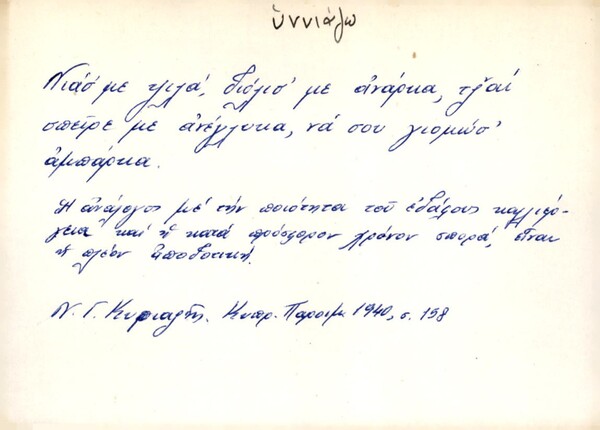 ὑννιάζω
Νιάσ' με ψιλά, διβόλισ' με ἀνάρκα, τζ̆αί
σπεῖρε με ἀνέγλυκα, νά σου γιομώσ'
ἀμπάρκα.
Ἡ ἀνάλογος μέ τήν ποιότητα τοῦ ἐδάφους καλλιέρ-
γεια καί ἡ κατά πρόσφορον χρόνον σπορά, εἶναι
ἡ πλέον ἀποδοτική.
Ν. Γ. Κυριαζῆς. Κυπρ. Παροιμ. 1940, σ. 158